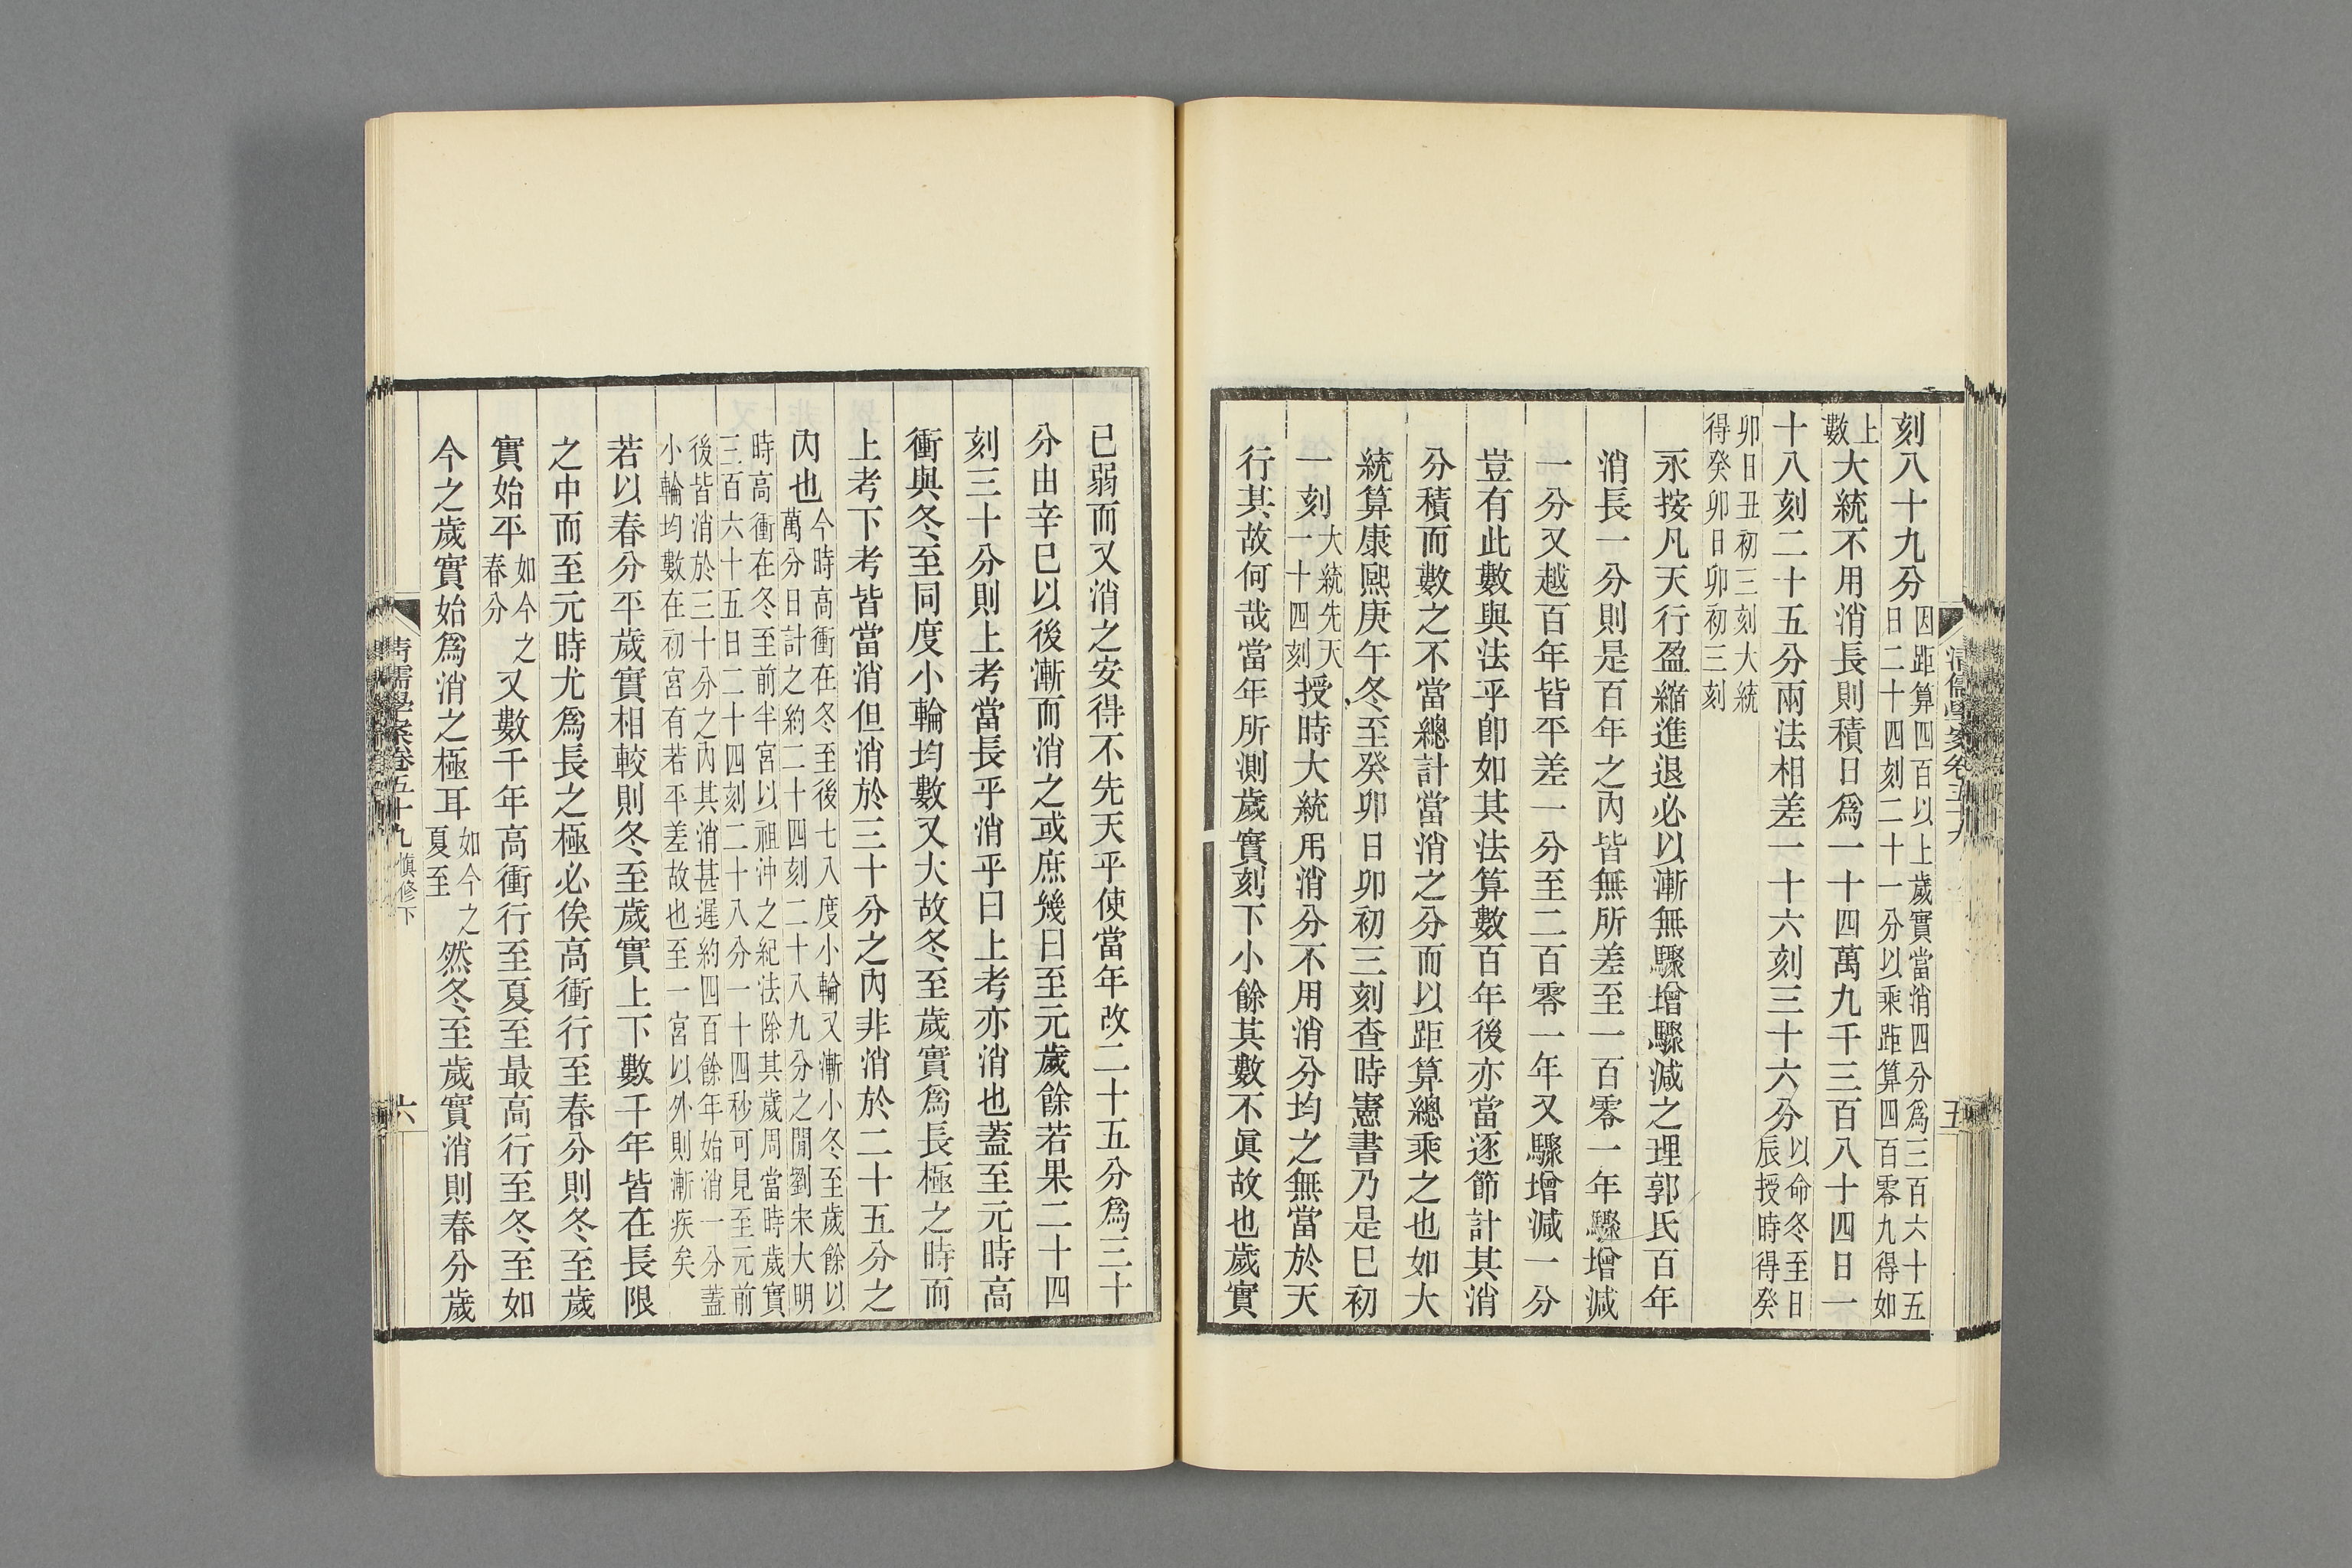 刻八十九分因距算四百以上歲實當消四分爲三百六十五日二十四刻二十一分以乘距算四百零九得如
上數大統不用消長則積日爲一十四萬九千三百八十四日一
十八刻二十五分兩法相差一十六刻三十六分以命冬至日辰授時得癸
卯日丑初三刻大統得癸卯日卯初三刻
永按凡天行盈縮進退必以漸無驟增驟減之理郭氏百年
消長一分則是百年之內皆無所差至一百零一年驟增減
一分又越百年皆平差一分至二百零一年又驟增減一分
豈有此數與法乎卽如其法算數百年後亦當逐節計其消
分積而數之不當總計當消之分而以距算總乘之也如大
統算康熙庚午冬至癸卯日卯初三刻查時憲書乃是巳初
一刻大統先天一十四刻授時大統用消分不用消分均之無當於天
行其故何哉當年所測歲實刻下小餘其數不眞故也歲實
清儒學案卷五十九
五
已弱而又消之安得不先天乎使當年改二十五分爲三十
分由辛巳以後漸而消之或庶幾曰至元歲餘若果二十四
刻三十分則上考當長乎消乎曰上考亦消也蓋至元時高
衝與冬至同度小輪均數又大故冬至歲實爲長極之時而
上考下考皆當消但消於三十分之內非消於二十五分之
內也今時高衝在冬至後七八度小輪又漸小冬至歲餘以萬分日計之約二十四刻二十八九分之閒劉宋大明
時高衝在冬至前半宮以祖沖之紀法除其歲周當時歲實三百六十五日二十四刻二十八分一十四秒可見至元前
後皆消於三十分之內其消甚遲約四百餘年始消一分蓋小輪均數在初宮有若平差故也至一宮以外則漸疾矣
若以春分平歲實相較則冬至歲實上下數千年皆在長限
之中而至元時尤爲長之極必俟高衝行至春分則冬至歲
實始平如今之春分又數千年高衝行至夏至最高行至冬至如
今之歲實始爲消之極耳如今之夏至然冬至歲實消則春分歲
清儒學案卷五十九 慎修下
六